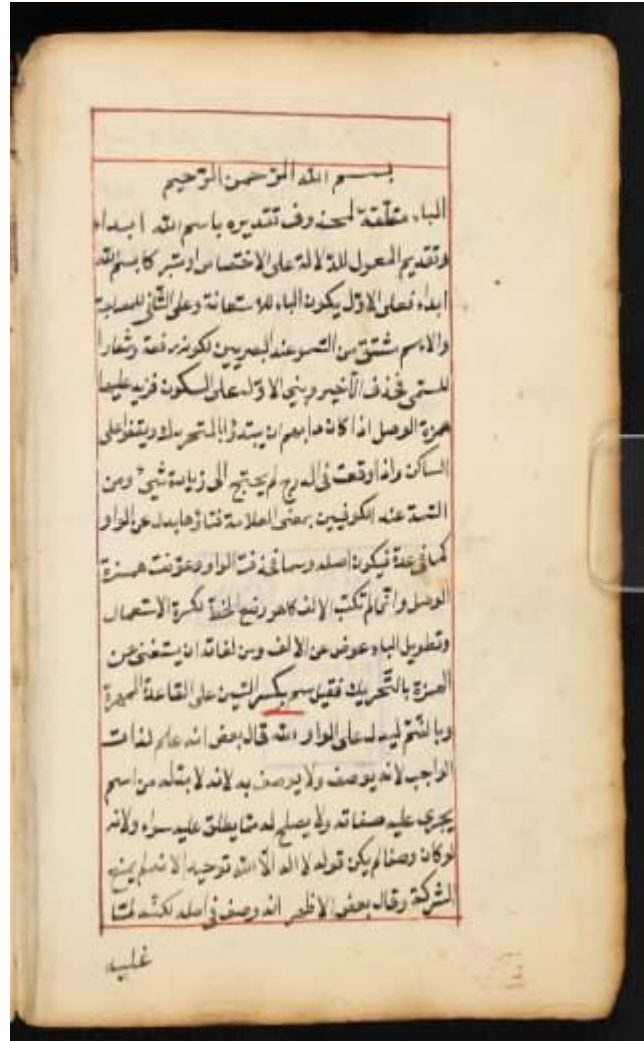 بسم الله الرحمن الرحيم
الباء متعلقة لمحذوف تقديره باسم الله ابداء
وتقديم المعمول للدلالة على الاختصاص او متبركا بسم الله
ابداء فعلى الاول يكون الباء للاستعانة وعلى الثاني للمصاحبة
والاسم مشتق من السمو عند البصريين لكونه رفعة وشعارا
للمسمى فحذف الاخير وبني الاول على السكون فزيد عليها
همزة الوصل اذا كان دابهم ان يبتدؤا بالمتحرك ويقفوا على
الساكن واذا وقعت في الدرج لم يحتج الى زيادة شيئ ومن
السمة عند الكوفيين بمعنى العلامة فتاؤها بدل عن الواو
كما في عدة فيكون اصله وسما فحذفت الواو وعوضت همزة
الوصل وانما لم تكتب الالف كما هو وضع الخط لكثرة الاستعمال
وتطويل الباء عوض عن الالف ومن لغاته ان يستغنى عن
الهمزة بالتحريك فقيل سم بكسر السين على القاعدة
وبالضم ليدل على الواو الله قال بعض انه علم لذات
الواجب لانه يوصف ولا يوصف به لانه لا بد له من اسم
يجرى عليه صفاته ولا يصلح له مما يطلق عليه سواه ولانه
لو كان وصفا لم يكن قوله لا اله الا الله توحيدا لانه لم يمنع
الشركة وقال بعض الاظهر انه وصف في اصله لكنه لما
غلب